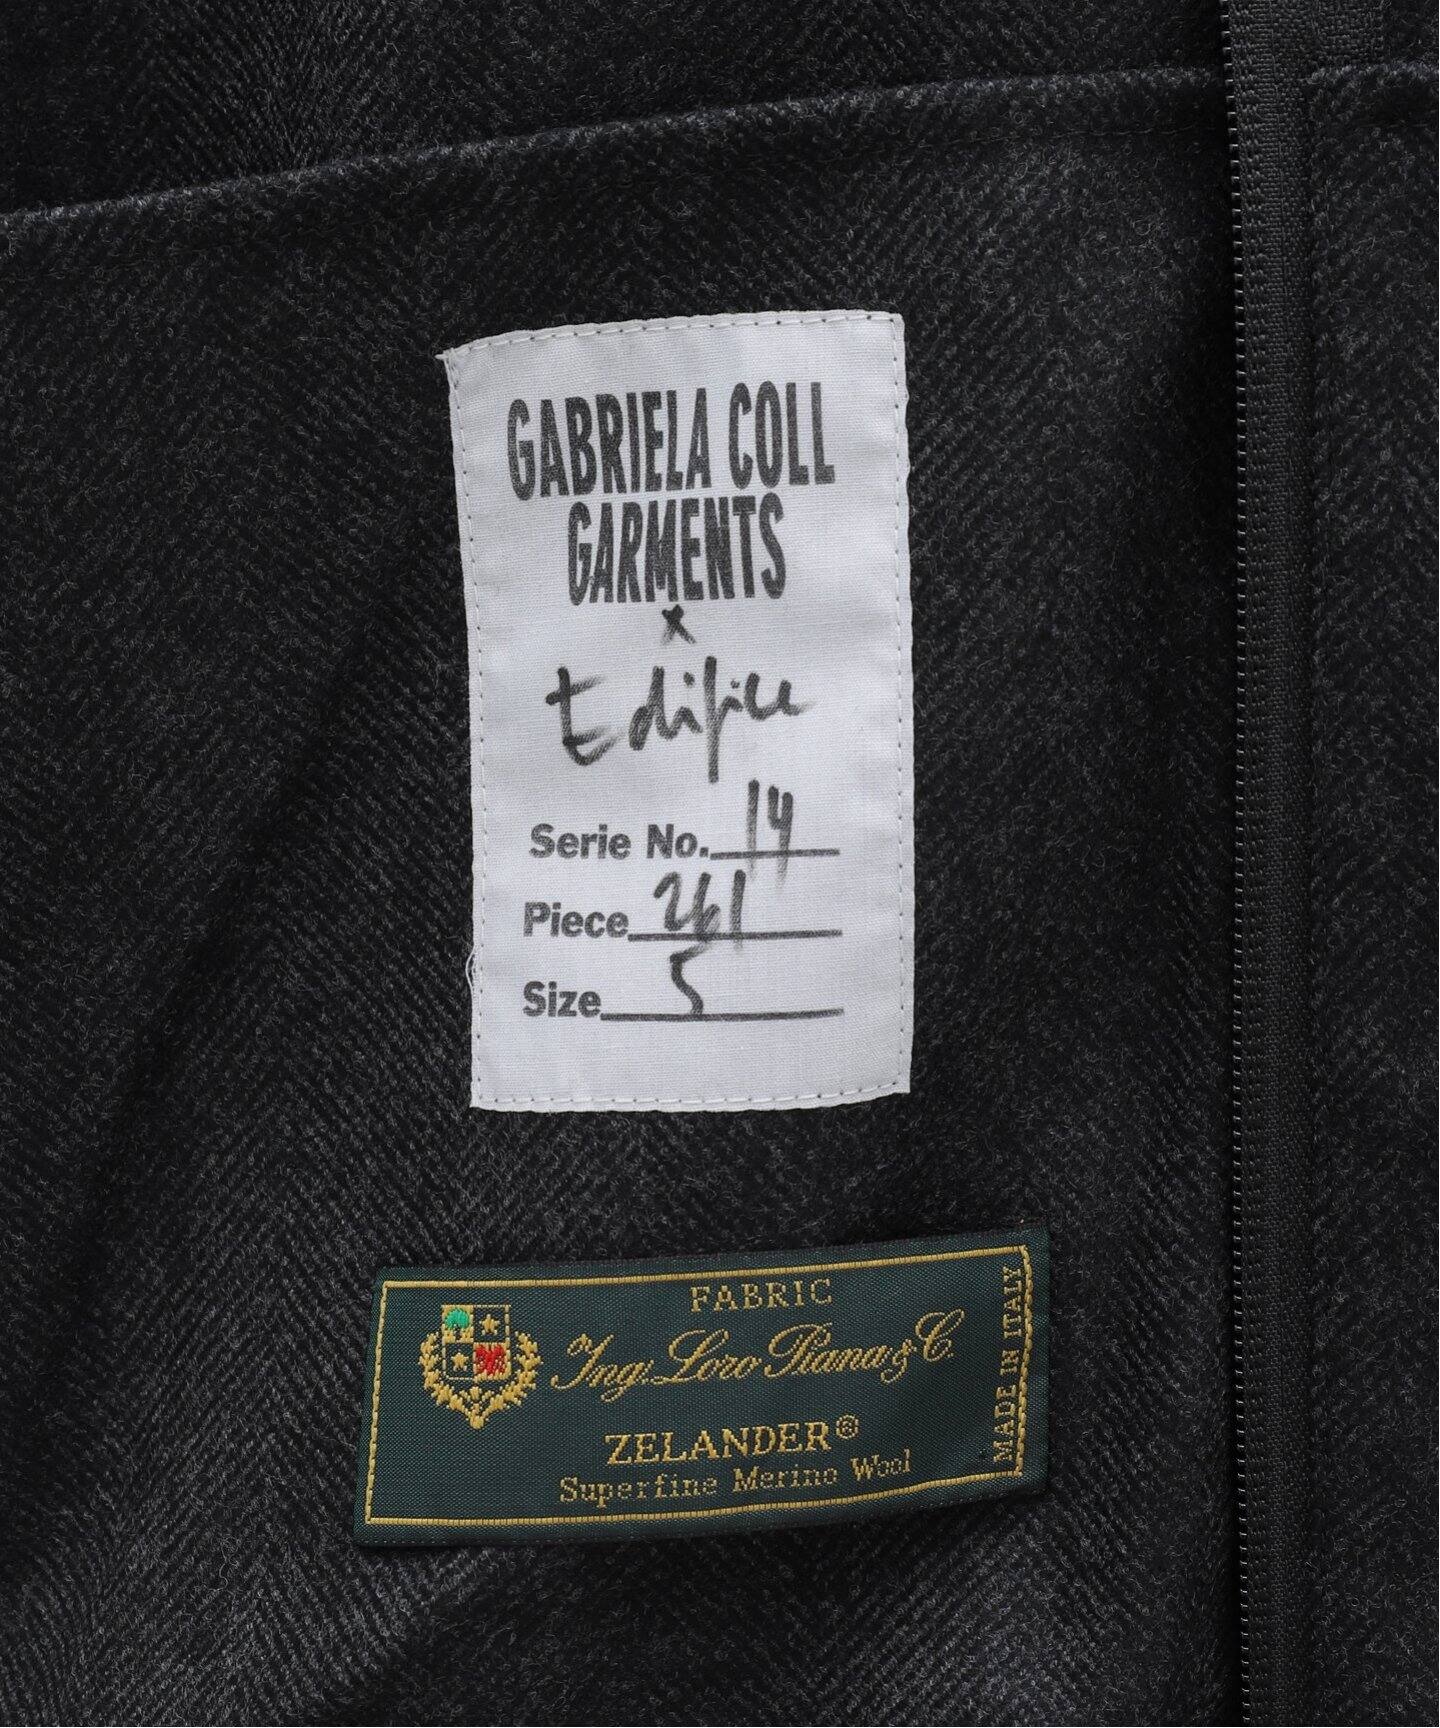 GABRIELA COLL
GARMENTS
x
Edifice
Serie No. 14
Piece 261
Size 5
FABRIC
Ing. Loro Piana & C.
ZELANDER®
Superfine Merino Wool
MADE IN ITALY